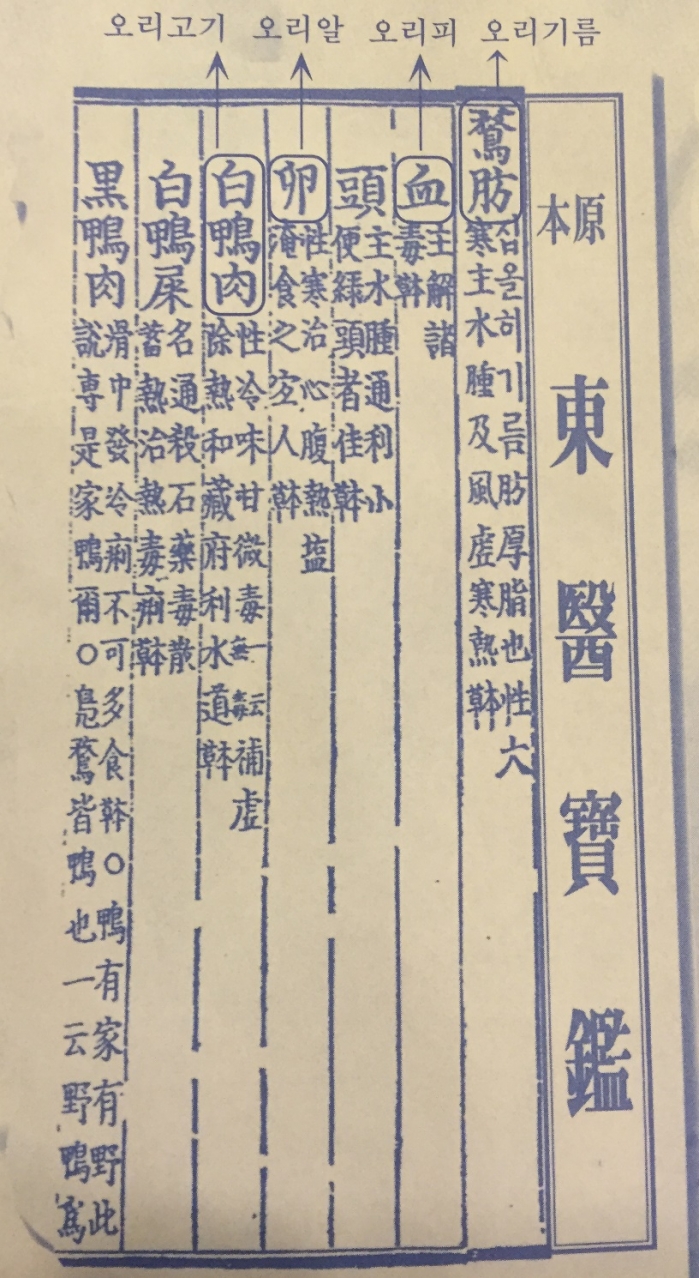 오리고기 오리알 오리피 오리기름
原本
東醫寶鑑
鶩肪
집올히기름肪厚脂也性大
寒主水腫及風虛寒熱本草
血
主解諸
毒本草
頭
主水腫通利小
便綠頭者佳本草
卵
性寒治心腹熱盐
淹食之宜人本草
白鴨肉
性冷味甘微毒一云無毒補虛
除熱和藏府利水道本草
白鴨屎
名通殺石藥毒散
蓄熱治熱毒痢本草
黑鴨肉
滑中發冷痢不可多食本草○鴨有家有野此
說專是家鴨爾○鳧鶩皆鴨也一云野鴨爲